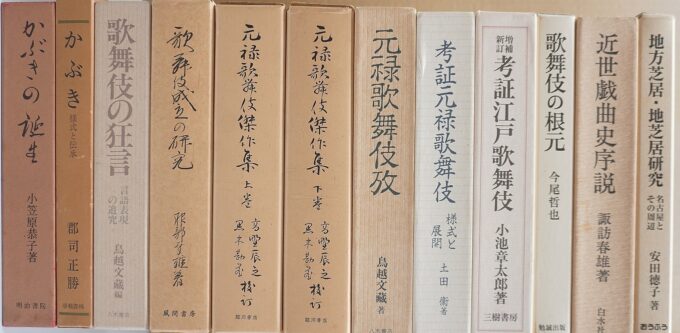 かぶきの誕生
小笠原恭子著
明治書院
かぶき
様式と伝承
郡司正勝
歌舞伎の狂言
言語表現
の追究
鳥越文蔵編
八木書店
歌舞伎成立の研究
服部幸雄著
風間書房
元禄歌舞伎傑作集 上巻
高野辰之
黒木勘蔵
校訂
臨川書店
元禄歌舞伎傑作集 下巻
高野辰之
黒木勘蔵
校訂
臨川書店
元禄歌舞伎攷
鳥越文蔵著
八木書店
考証元禄歌舞伎
様式と
展開
土田衞著
八木書店
増補
新訂
考証江戸歌舞伎
小池章太郎著
三樹書房
歌舞伎の根元
今尾哲也
勉誠出版
近世戯曲史序説
諏訪春雄著
白水社
地方芝居・地芝居研究
名古屋と
その周辺
安田徳子著
おうふう